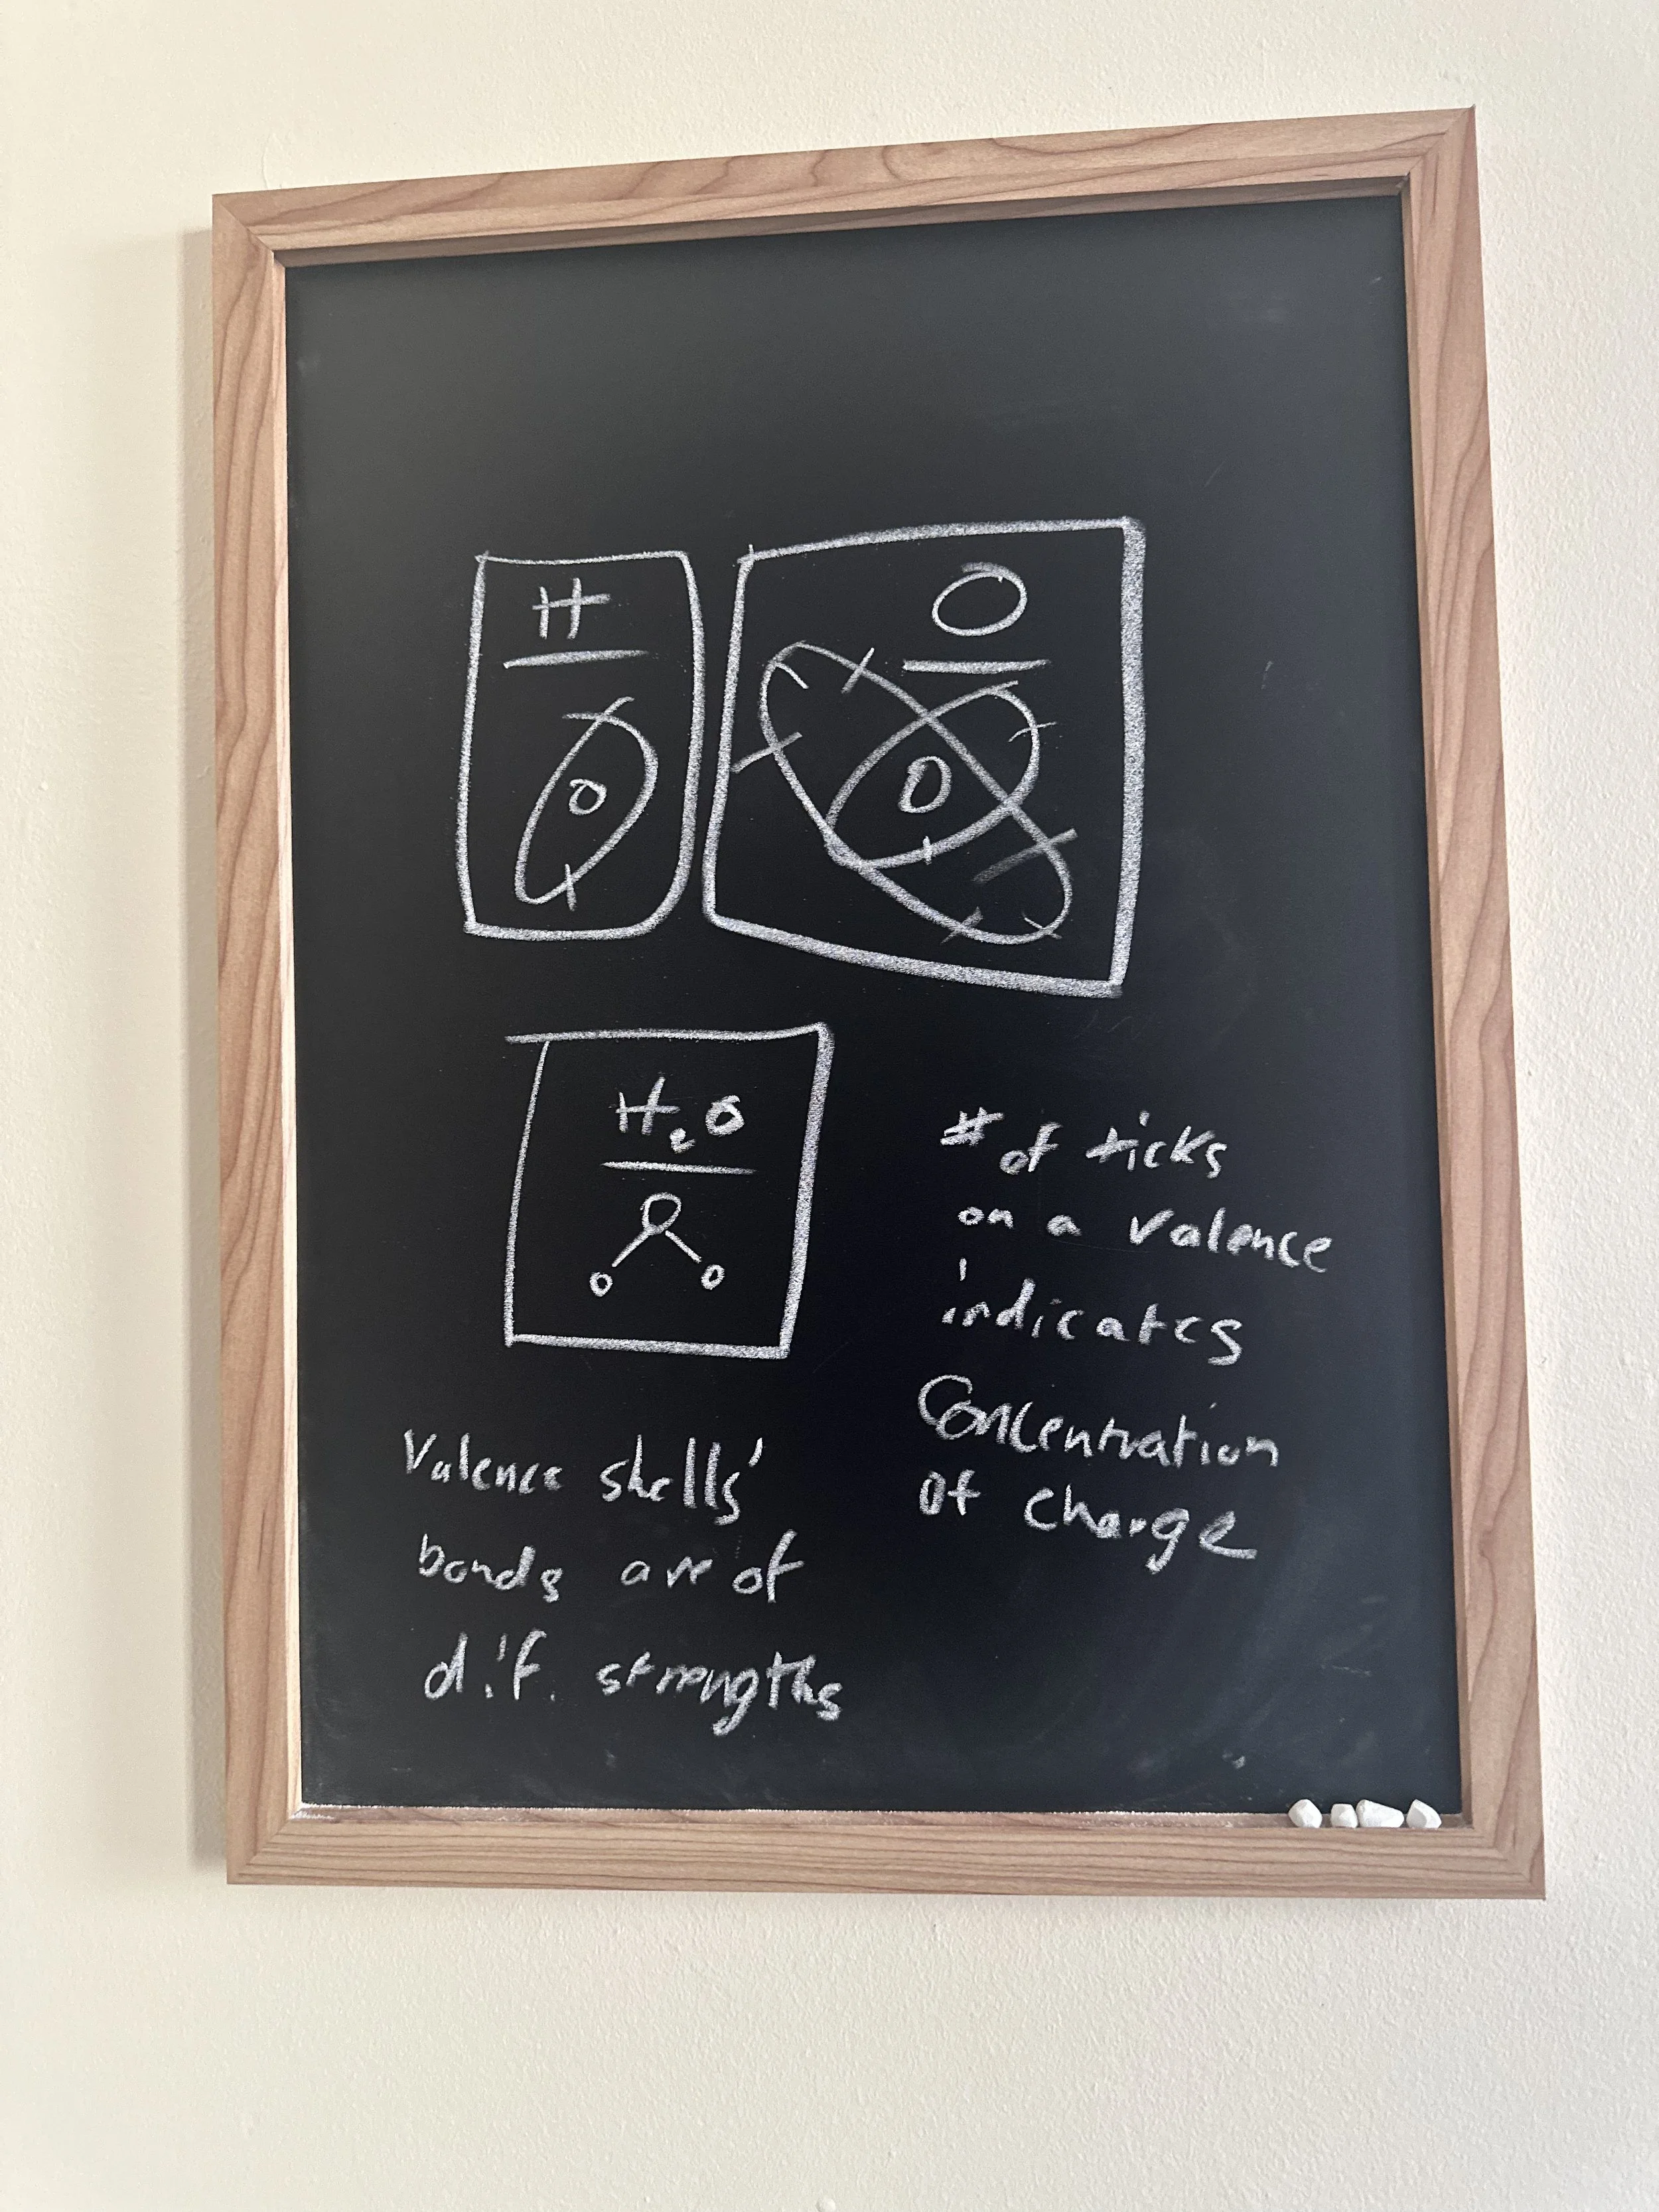 H
O
H₂O
# of ticks
on a valence
indicates
Concentration
of charge
Valence shells'
bonds are of
dif. strengths